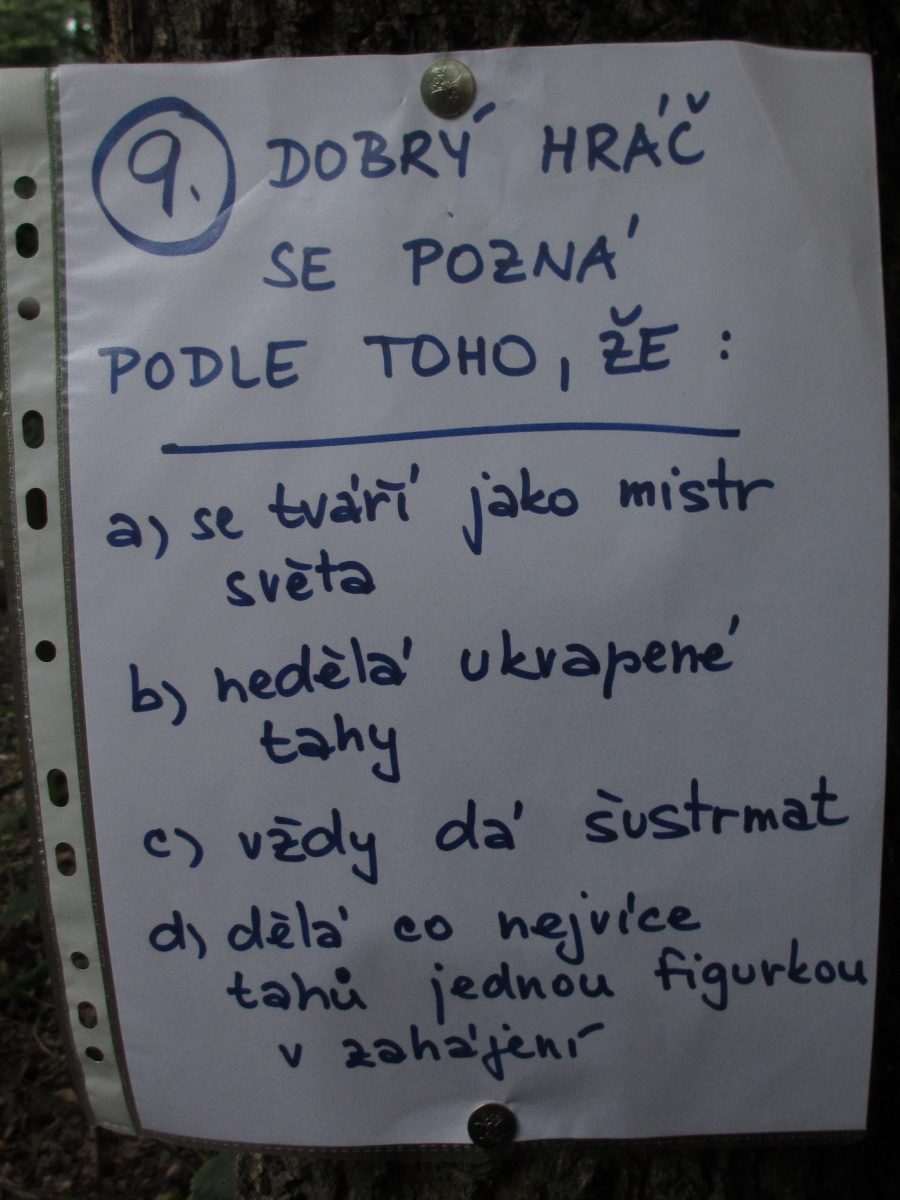 9. DOBRÝ HRÁČ
SE POZNÁ
PODLE TOHO, ŽE :
a) se tváří jako mistr
světa
b) nedělá ukvapené
tahy
c) vždy dá šustrmat
d) dělá co nejvíce
tahů jednou figurkou
v zahájení